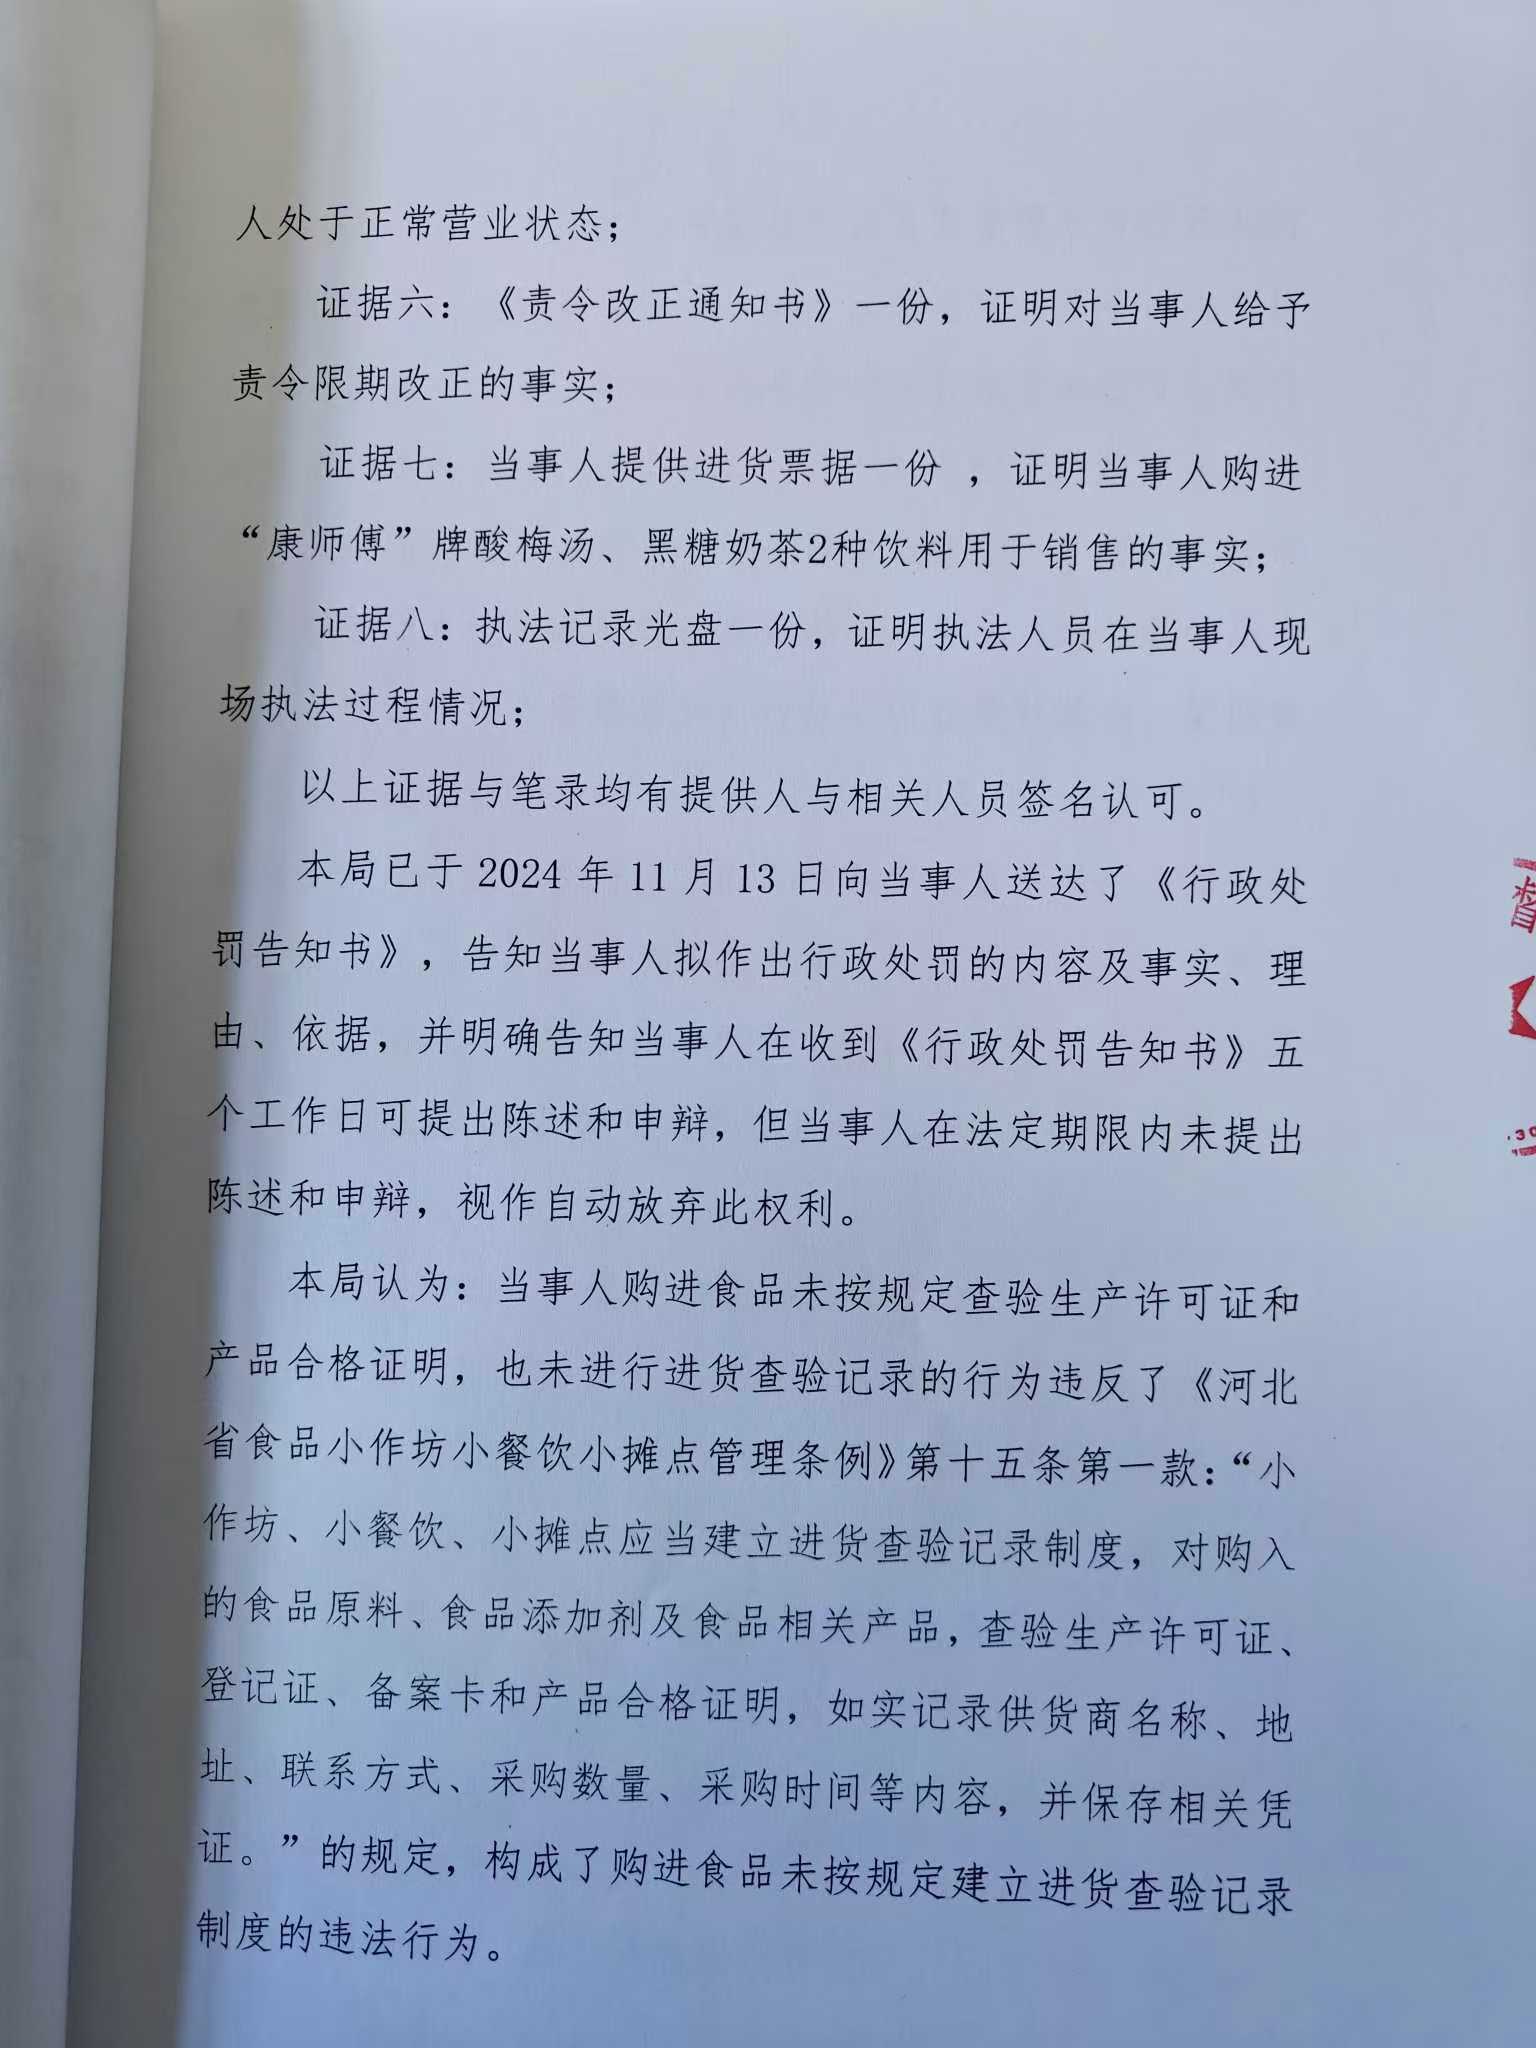 人处于正常营业状态；
证据六：《责令改正通知书》一份，证明对当事人给予
责令限期改正的事实；
证据七：当事人提供进货票据一份 ，证明当事人购进
“康师傅”牌酸梅汤、黑糖奶茶2种饮料用于销售的事实；
证据八：执法记录光盘一份，证明执法人员在当事人现
场执法过程情况；
以上证据与笔录均有提供人与相关人员签名认可。
本局已于 2024 年 11 月 13 日向当事人送达了《行政处
罚告知书》，告知当事人拟作出行政处罚的内容及事实、理
由、依据，并明确告知当事人在收到《行政处罚告知书》五
个工作日可提出陈述和申辩，但当事人在法定期限内未提出
陈述和申辩，视作自动放弃此权利。
本局认为：当事人购进食品未按规定查验生产许可证和
产品合格证明，也未进行进货查验记录的行为违反了《河北
省食品小作坊小餐饮小摊点管理条例》第十五条第一款：“小
作坊、小餐饮、小摊点应当建立进货查验记录制度，对购入
的食品原料、食品添加剂及食品相关产品，查验生产许可证、
登记证、备案卡和产品合格证明，如实记录供货商名称、地
址、联系方式、采购数量、采购时间等内容，并保存相关凭
证。”的规定，构成了购进食品未按规定建立进货查验记录
制度的违法行为。
督